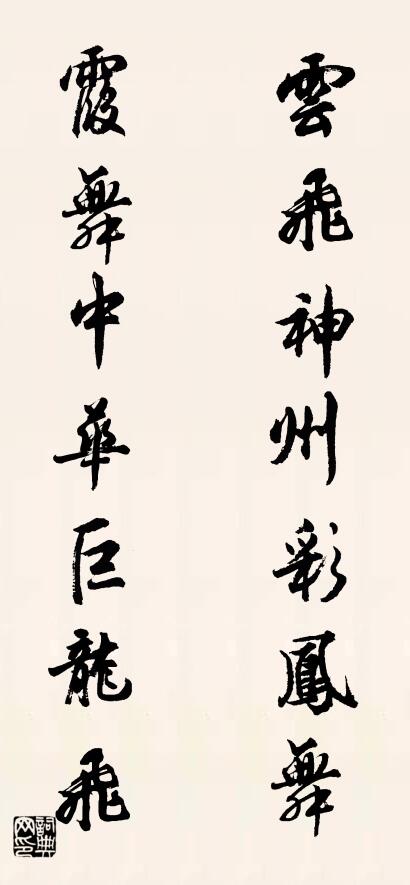 雲飛神州彩鳳舞
霞舞中華巨龍飛
詞典
网印